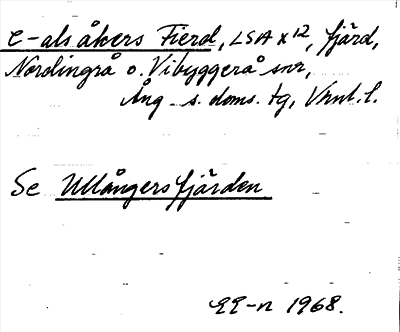 e-als åkers Fierd, LSA X 12, fjärd,
Nordingrå o. Vibyggerå snr,
Ång. s. doms. tg, Vnnl. l.
Se Ullångersfjärden
EE-n 1968.